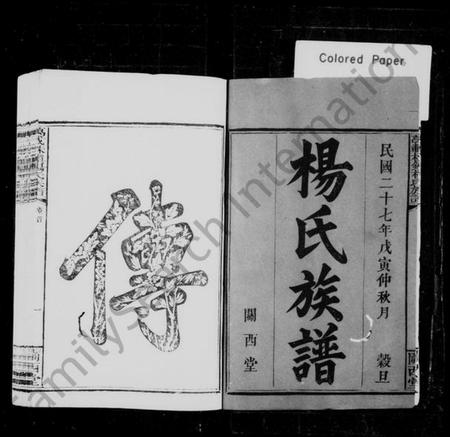 Colored Paper
民國二十七年戊寅仲秋月 穀旦
楊氏族譜
關西堂
傳
卷首
一
關西堂
FamilySearch International